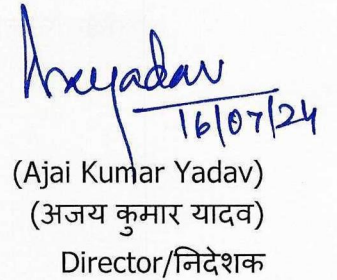 16/07/24
(Ajai Kumar Yadav)
(अजय कुमार यादव)
Director/निदेशक